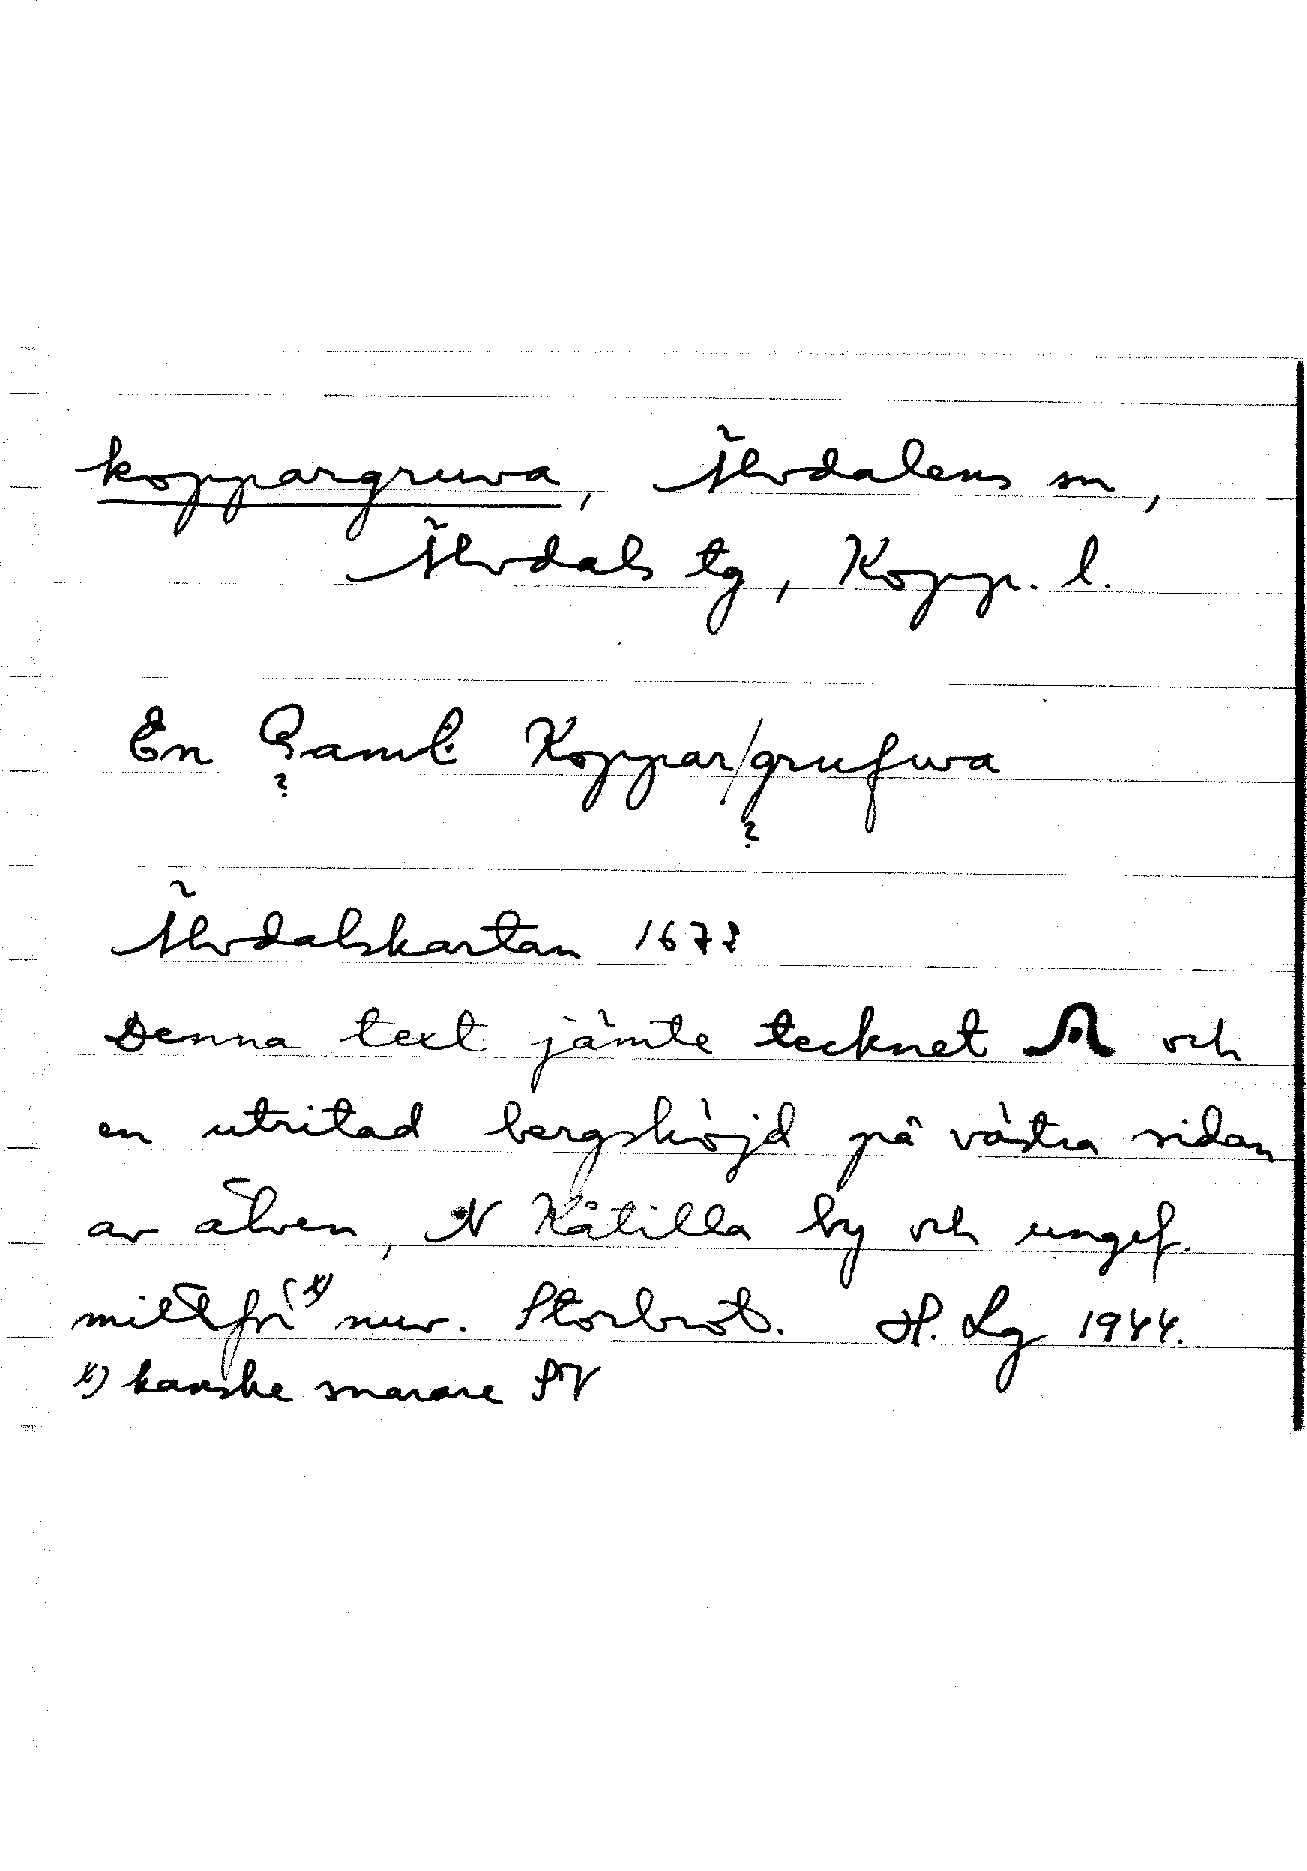 koppargruva, Älvdalens sn,
Älvdals tg, Kopp. l.
En Gaml: Koppar/grufwa
? ?
Älvdalskartan 1672
Denna text jämte tecknet och
en utritad bergshöjd på västra sidan
av älven, N Kåtilla by och ungef.
mitt för x) nuv. Storbrot. H. Lg 1944.
x) kanske snarare SV